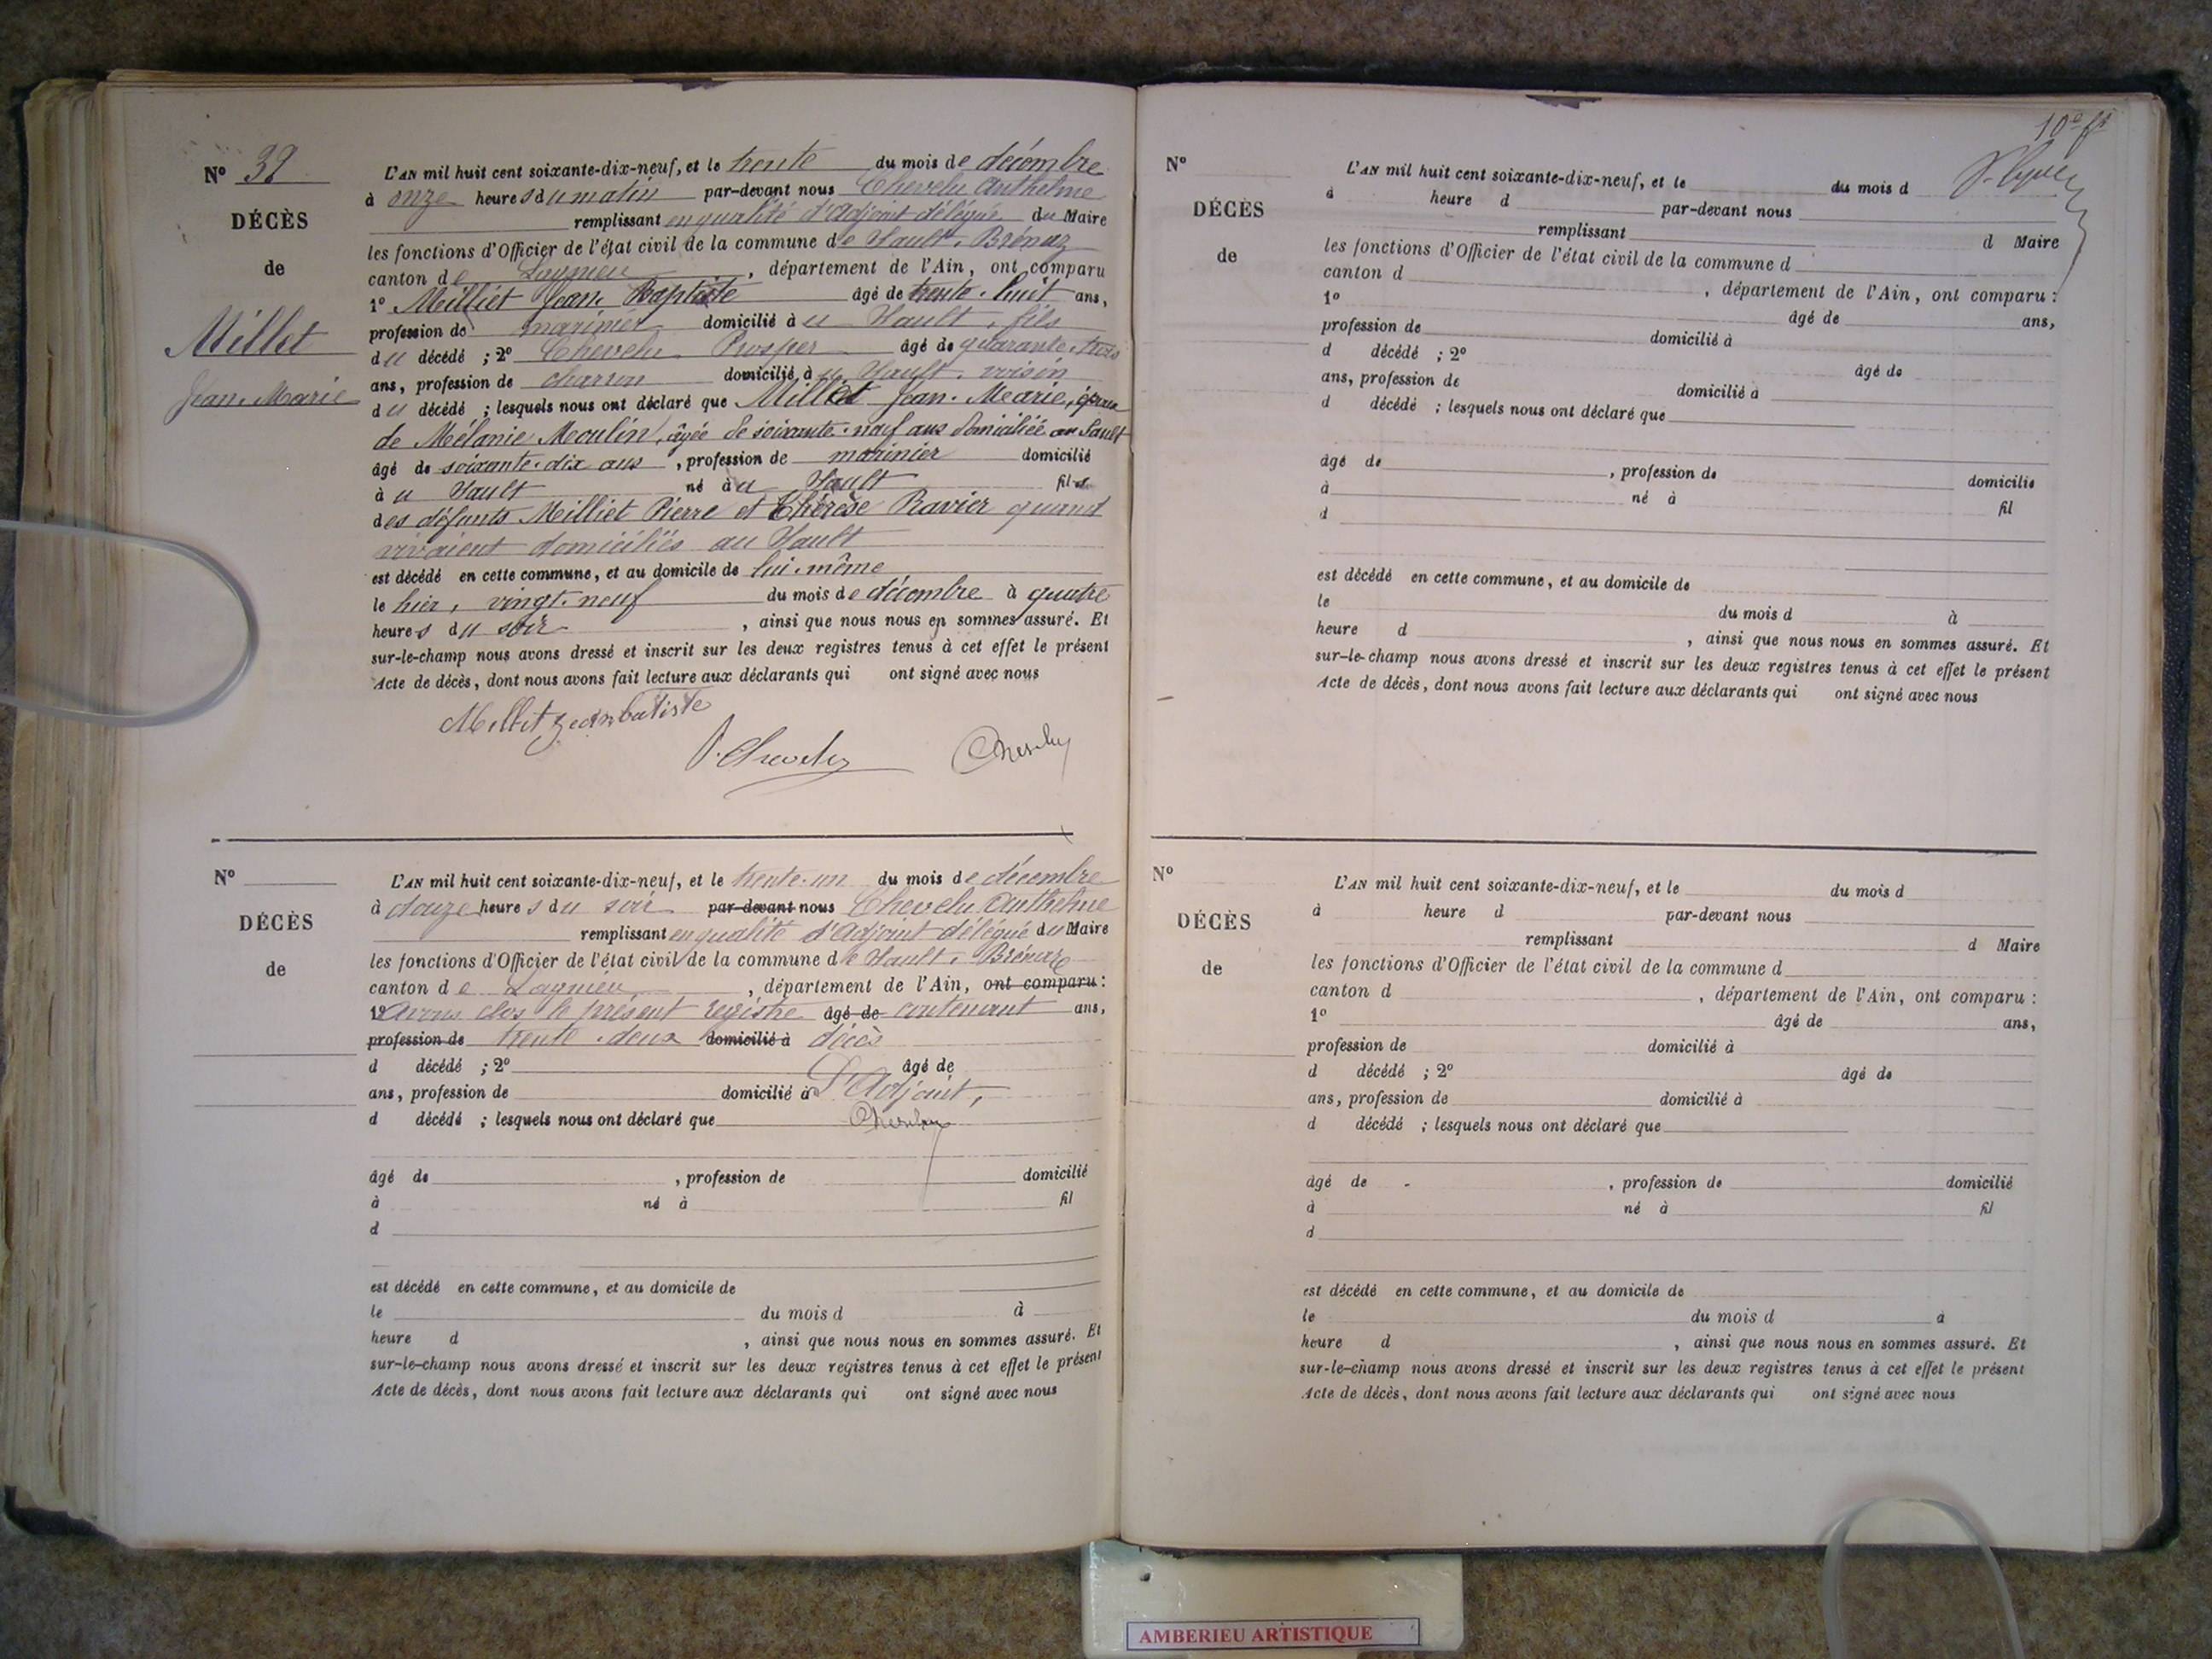 N° 32
DÉCÈS
de
Millet
Jean-Marie
L'AN mil huit cent soixante-dix-neuf, et le trente du mois de décembre
à onze heures du matin par-devant nous Chevelu Anthelme
remplissant en qualité d'Adjoint délégué du Maire
les fonctions d'Officier de l'état civil de la commune de Sault-Brénaz
canton de Lagnieu, département de l'Ain, ont comparu
1° Milliet Jean-Baptiste âgé de trente-huit ans,
profession de marinier domicilié à u Sault, fils
du décédé ; 2° Chevelu Prosper âgé de quarante-trois
ans, profession de charron domicilié à u Sault, voisin
du décédé ; lesquels nous ont déclaré que Milliet Jean-Marie, époux
de Mélanie Moulin, âgée de soixante-neuf ans domiciliée au Sault
âgé de soixante-dix ans, profession de marinier domicilié
à u Sault né à u Sault fils
des défunts Milliet Pierre et Thérèse Ravier quand
vivaient domiciliés au Sault
est décédé en cette commune, et au domicile de lui-même
le hier, vingt-neuf du mois de décembre à quatre
heures du soir, ainsi que nous nous en sommes assuré. Et
sur-le-champ nous avons dressé et inscrit sur les deux registres tenus à cet effet le présent
Acte de décès, dont nous avons fait lecture aux déclarants qui ont signé avec nous
Milliet Jeanbatiste
P. Chevelu Chevelu
N°
DÉCÈS
de
L'AN mil huit cent soixante-dix-neuf, et le trente-un du mois de décembre
à douze heures du soir par-devant nous Chevelu Anthelme
remplissant en qualité d'Adjoint délégué du Maire
les fonctions d'Officier de l'état civil de la commune de Sault-Brénaz
canton de Lagnieu, département de l'Ain, ont comparu :
1° Avons clos le présent registre âgé de contenant ans,
profession de trente-deux domicilié à décès
d décédé ; 2° âgé de
ans, profession de domicilié à L'Adjoint,
d décédé ; lesquels nous ont déclaré que Chevelu
âgé de , profession de domicilié
à né à fil
d
est décédé en cette commune, et au domicile de
le du mois d à
heure d , ainsi que nous nous en sommes assuré. Et
sur-le-champ nous avons dressé et inscrit sur les deux registres tenus à cet effet le présent
Acte de décès, dont nous avons fait lecture aux déclarants qui ont signé avec nous
10e ft
N°
DÉCÈS
de
L'AN mil huit cent soixante-dix-neuf, et le du mois d
à heure d par-devant nous
remplissant d Maire
les fonctions d'Officier de l'état civil de la commune d
canton d , département de l'Ain, ont comparu :
1° âgé de ans,
profession de domicilié à
d décédé ; 2° âgé de
ans, profession de domicilié à
d décédé ; lesquels nous ont déclaré que
âgé de , profession de domicilié
à né à fil
d
est décédé en cette commune, et au domicile de
le du mois d à
heure d , ainsi que nous nous en sommes assuré. Et
sur-le-champ nous avons dressé et inscrit sur les deux registres tenus à cet effet le présent
Acte de décès, dont nous avons fait lecture aux déclarants qui ont signé avec nous
N°
DÉCÈS
de
L'AN mil huit cent soixante-dix-neuf, et le du mois d
à heure d par-devant nous
remplissant d Maire
les fonctions d'Officier de l'état civil de la commune d
canton d , département de l'Ain, ont comparu :
1° âgé de ans,
profession de domicilié à
d décédé ; 2° âgé de
ans, profession de domicilié à
d décédé ; lesquels nous ont déclaré que
âgé de , profession de domicilié
à né à fil
d
est décédé en cette commune, et au domicile de
le du mois d à
heure d , ainsi que nous nous en sommes assuré. Et
sur-le-champ nous avons dressé et inscrit sur les deux registres tenus à cet effet le présent
Acte de décès, dont nous avons fait lecture aux déclarants qui ont signé avec nous
AMBERIEU ARTISTIQUE